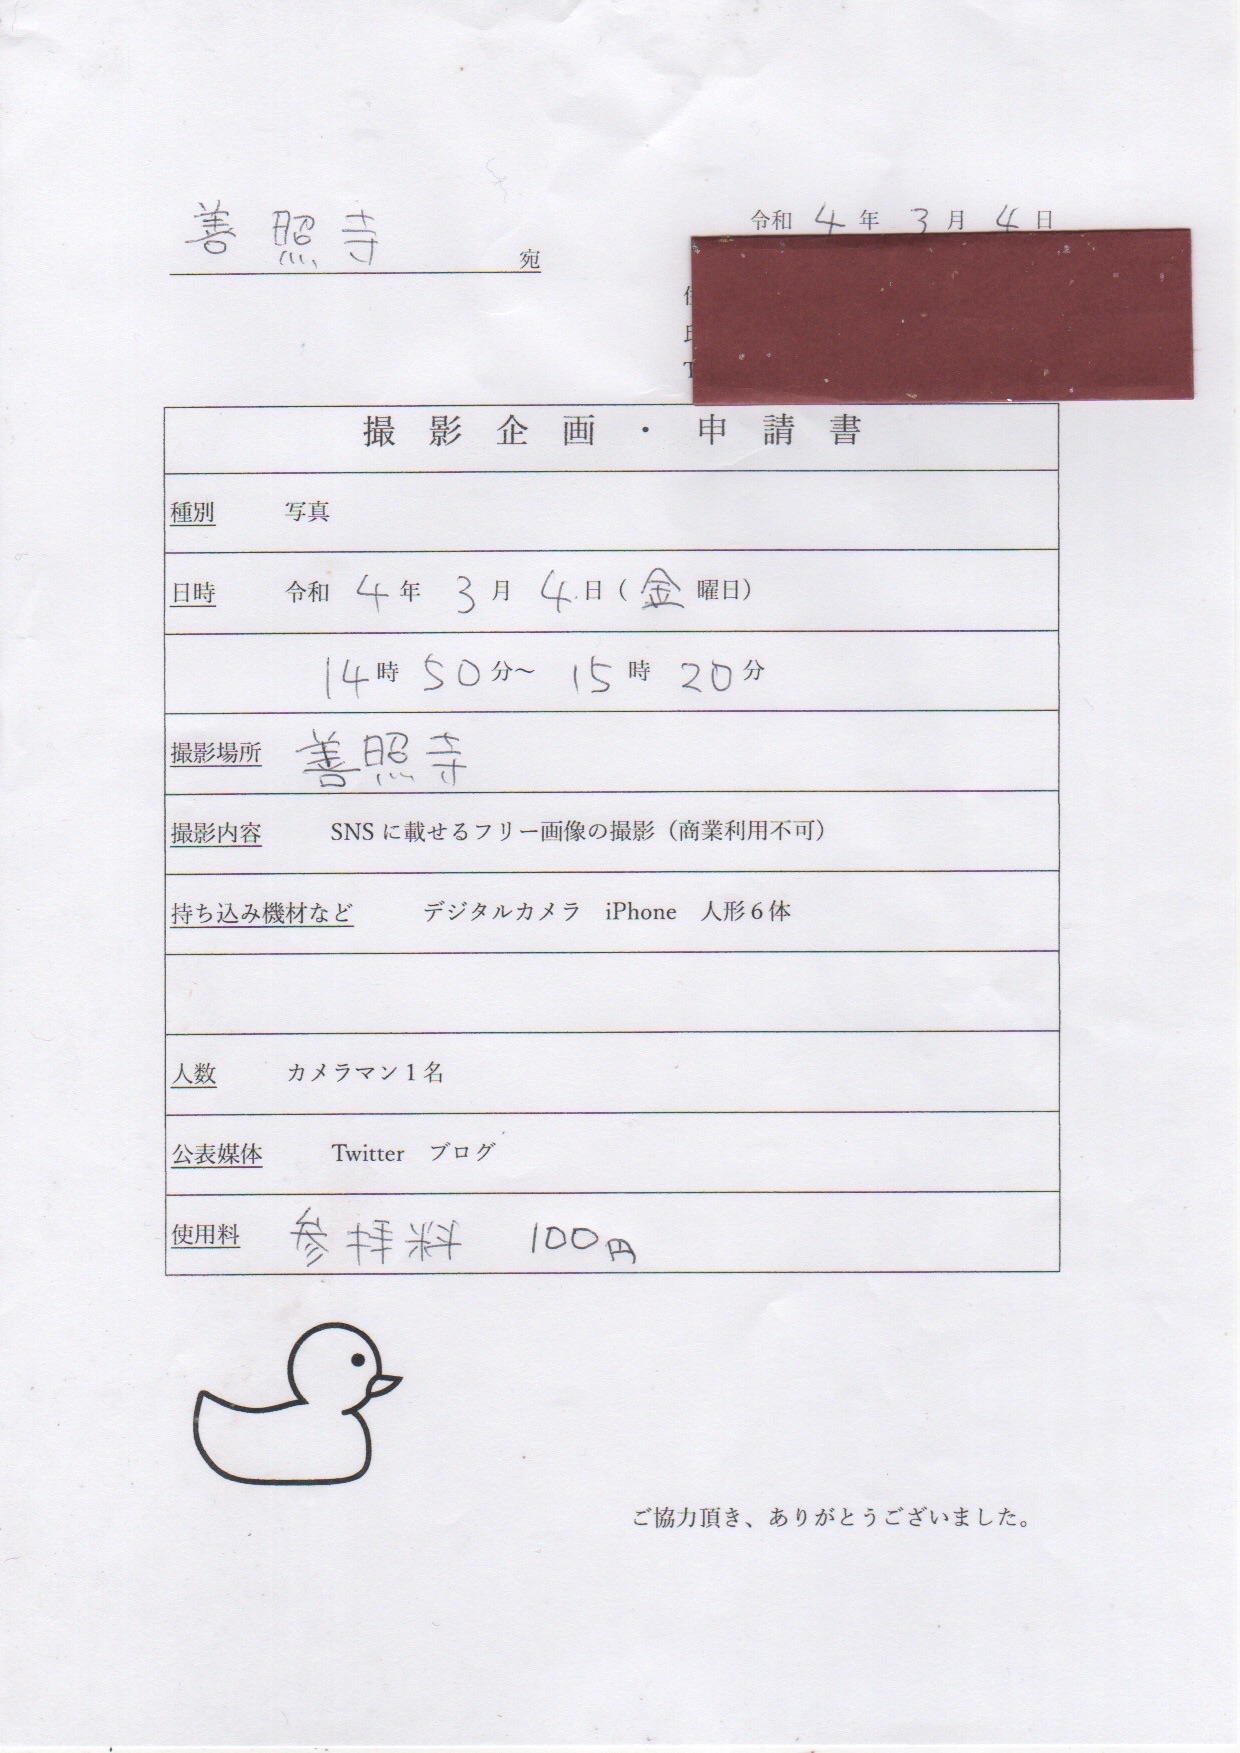 善照寺 宛
令和 4 年 3 月 4 日
T
撮影企画・申請書
種別 写真
日時 令和 4 年 3 月 4 日（金曜日）
14時 50分～ 15時 20分
撮影場所 善照寺
撮影内容 SNS に載せるフリー画像の撮影（商業利用不可）
持ち込み機材など デジタルカメラ iPhone 人形６体
人数 カメラマン１名
公表媒体 Twitter ブログ
使用料 参拝料 100円
ご協力頂き、ありがとうございました。